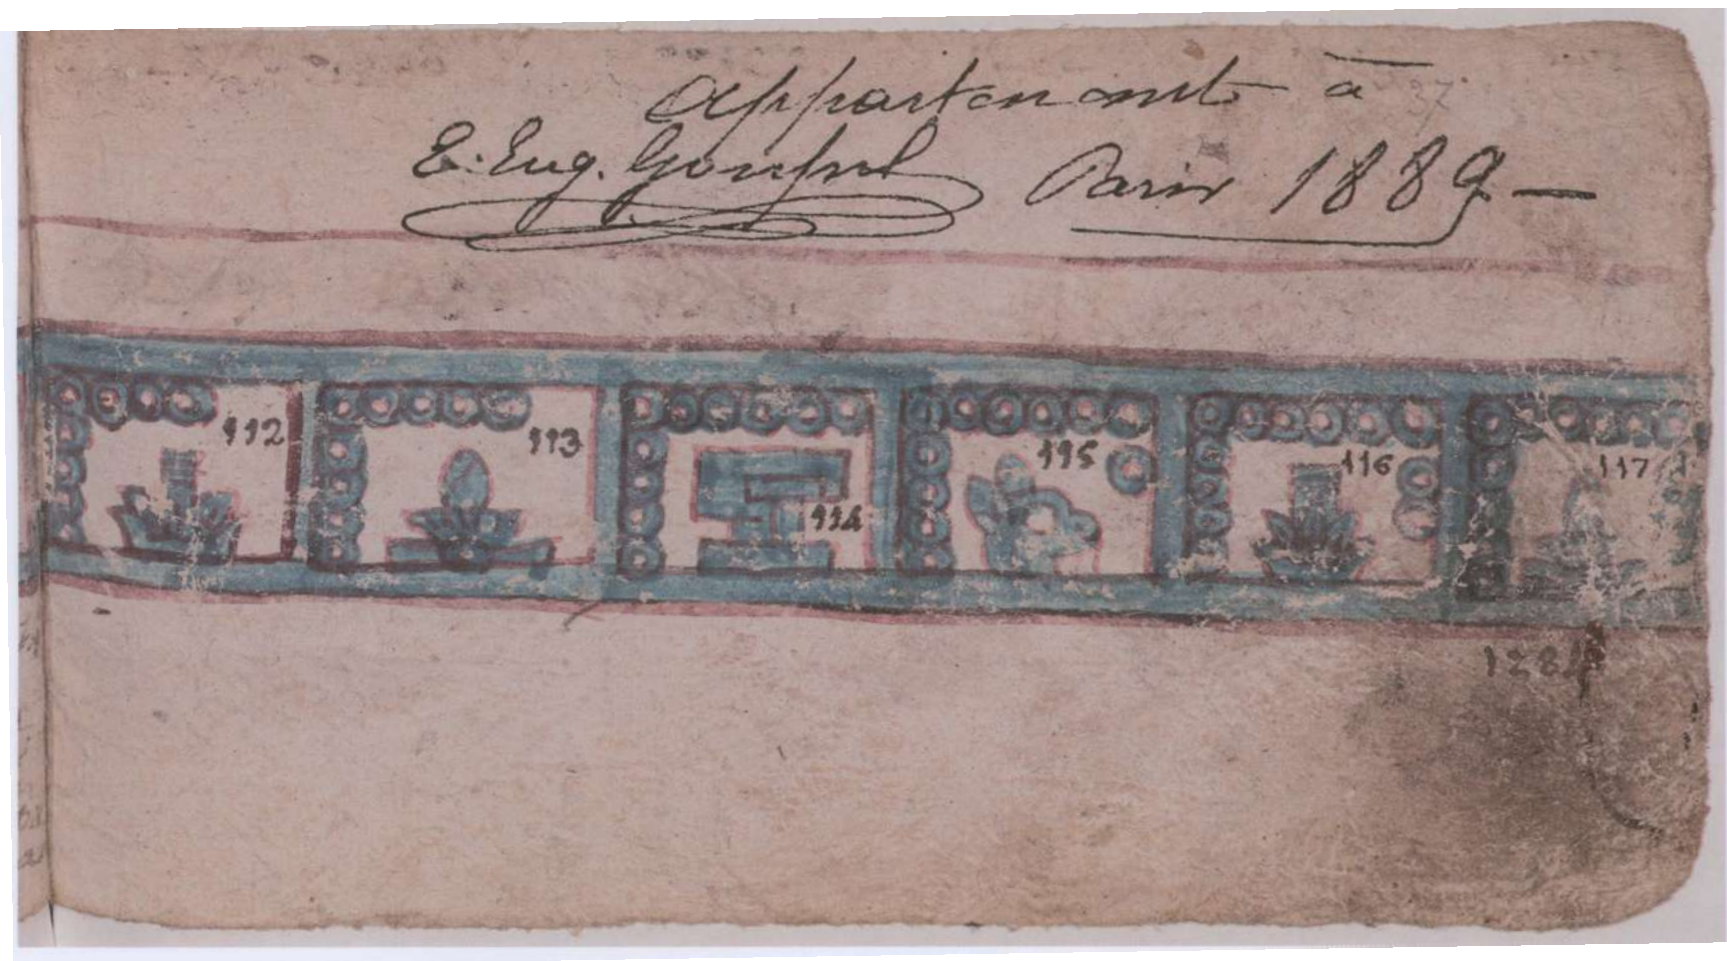 appartenant à 37
E. Eug. Goupil Paris 1889 —
112
113
114
115
116
117
128